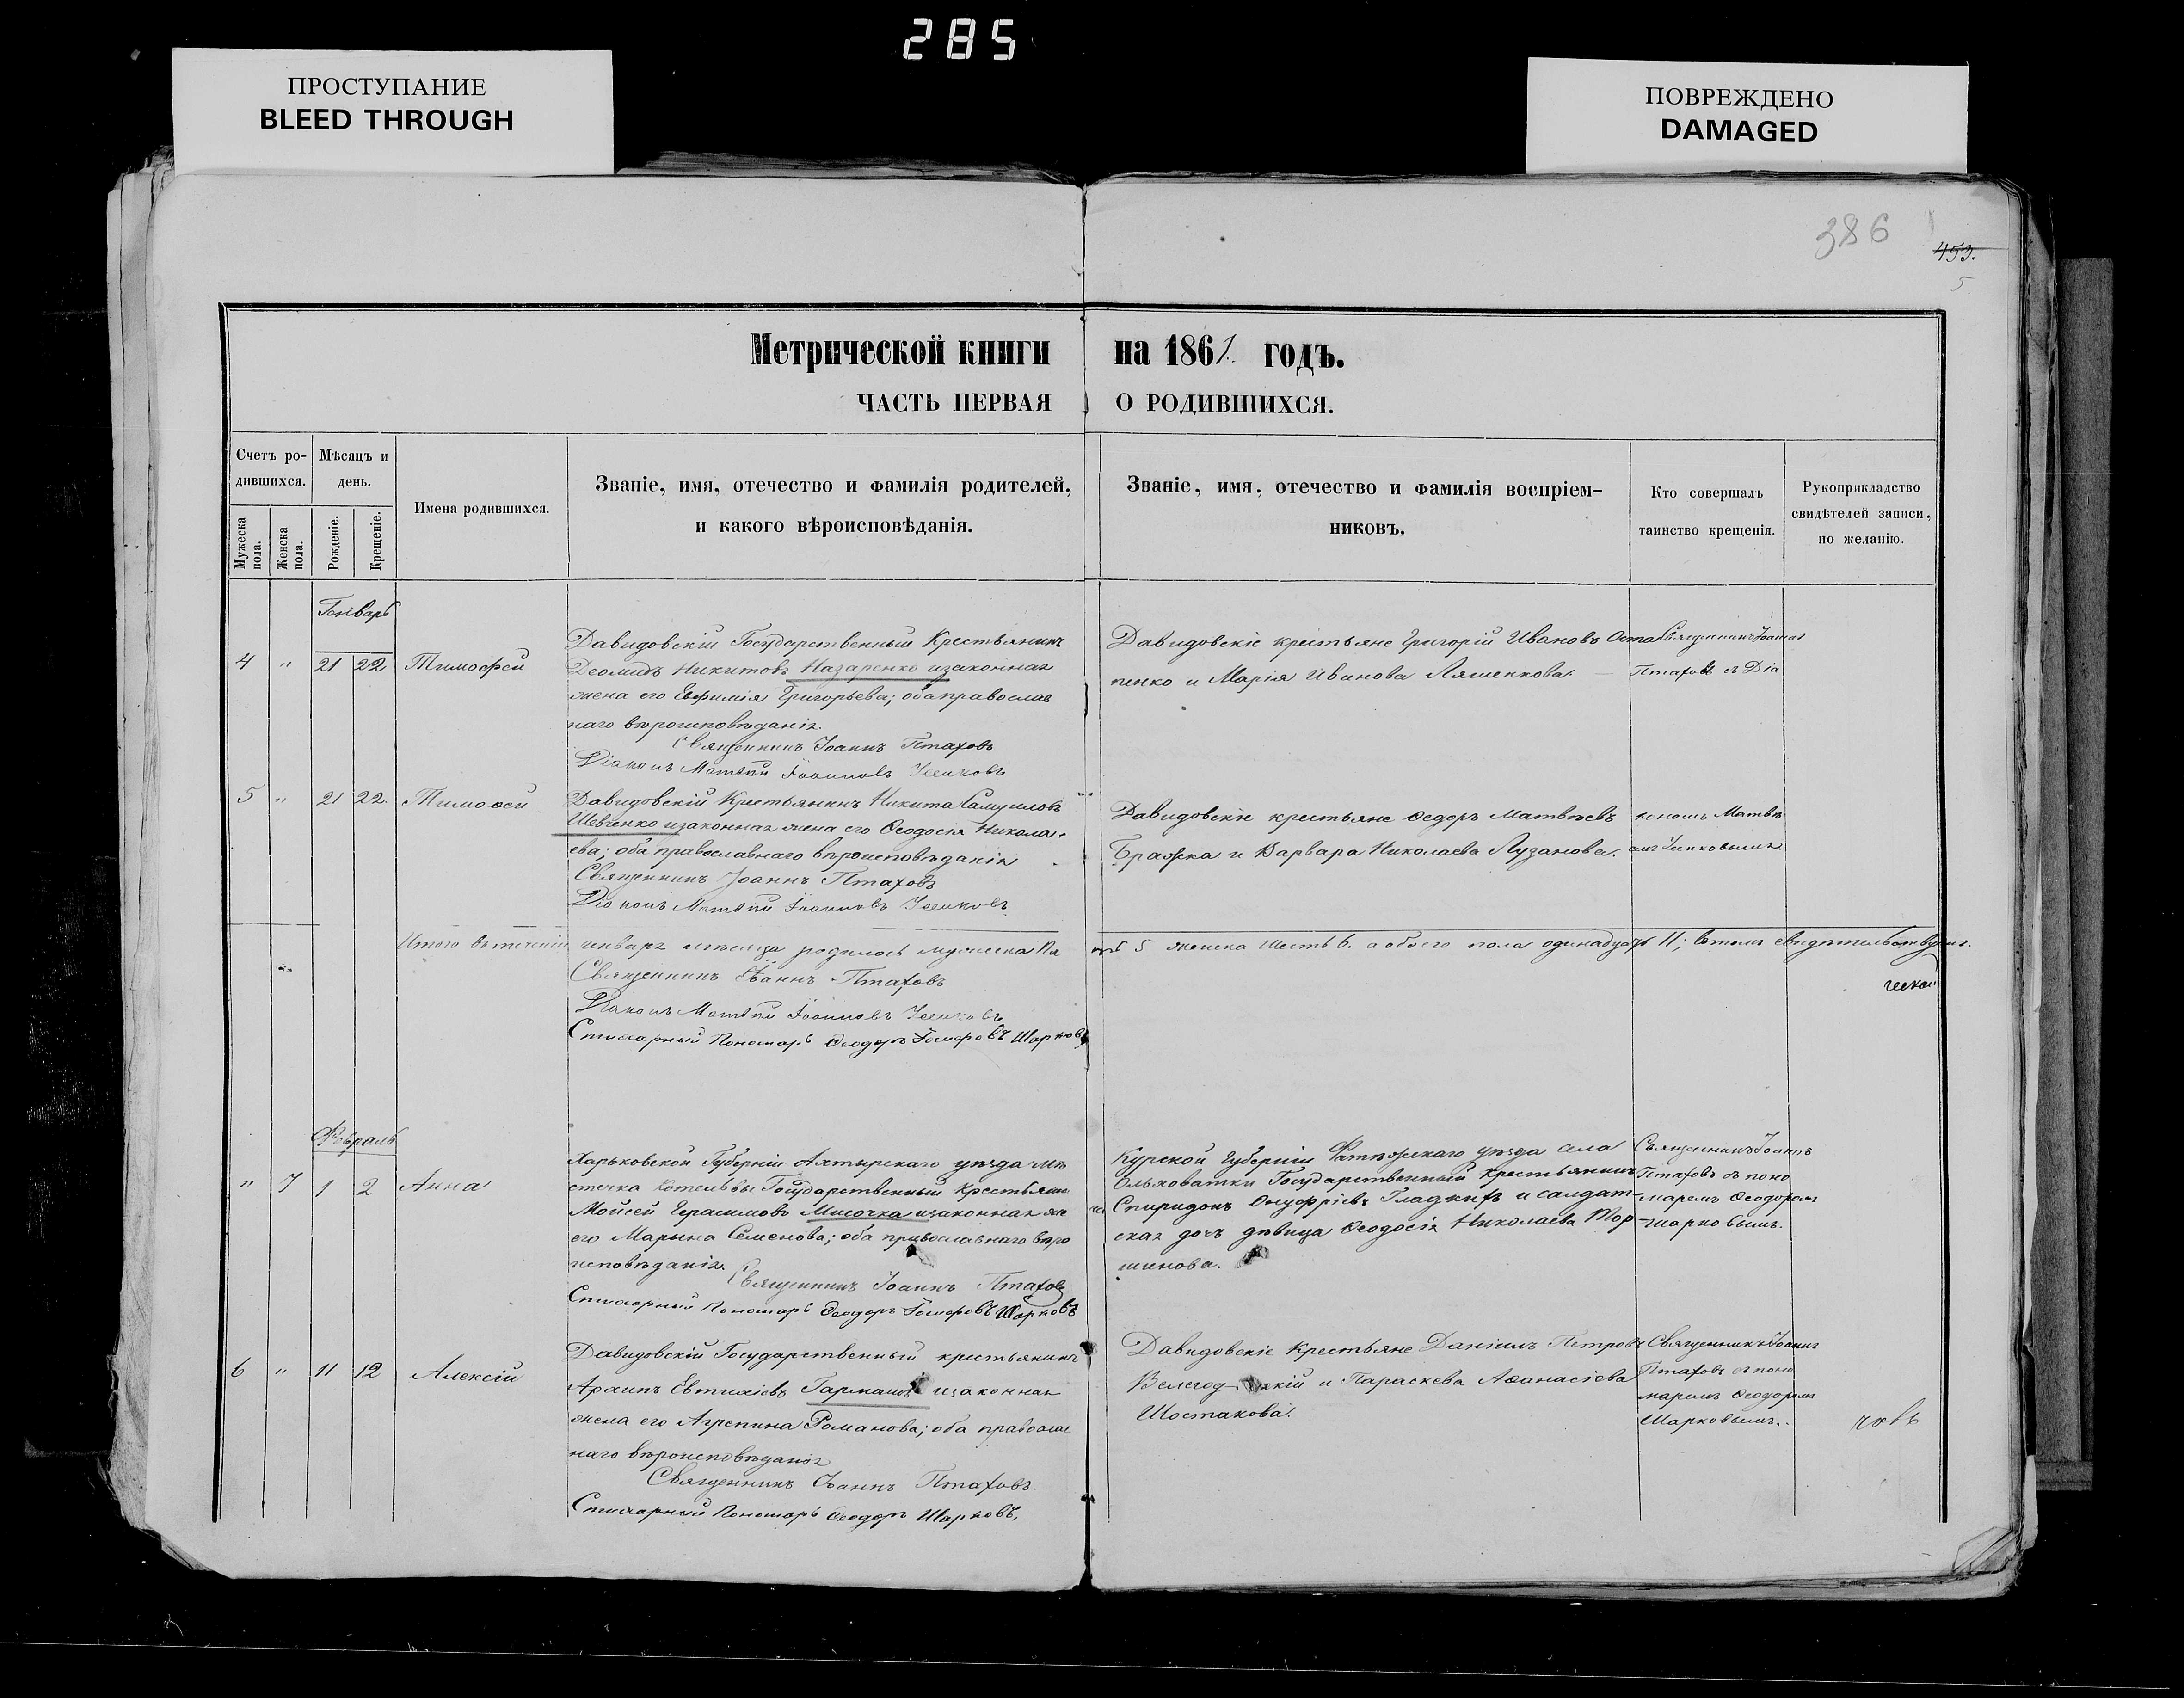 285
ПРОСТУПАНИЕ
BLEED THROUGH
ПОВРЕЖДЕНО
DAMAGED
386
453.
5
Метрической книги на 1861. годъ.
ЧАСТЬ ПЕРВАЯ О РОДИВШИХСЯ.
Счетъ ро-
дившихся.
Мужеска пола.
Женска пола.
Мѣсяцъ и
день.
Рожденіе.
Крещеніе.
Имена родившихся.
Званіе, имя, отечество и фамилія родителей,
и какого вѣроисповѣданія.
Званіе, имя, отечество и фамилія воспріем-
никовъ.
Кто совершалъ
таинство крещенія.
Рукоприкладство
свидѣтелей записи,
по желанію.
Генварь
4 " 21 22 Тимофей
Давидовскій Государственный Крестьянинъ
Деомидъ Никитовъ Назаренко и законная
жена его Евфимія Григорьева; оба православ
наго вѣроисповѣданія.
Священникъ Іоаннъ Птаховъ
Діаконъ Матѳѣй Іоанновъ
Давидовскіе крестьяне Григорій Ивановъ Оста
пенко и Марія Иванова Ляшенкова.
Священникъ Іоаннъ
Птаховъ съ Діа
5 " 21 22. Тимоѳей
Давидовскій Крестьянинъ Никита Самуиловъ
Шевченко и законная жена его Ѳеодосія Никола-
ева; оба православнаго вѣроисповѣданія
Священникъ Іоаннъ Птаховъ
Діаконъ Матѳѣй Іоанновъ
Давидовскіе крестьяне Ѳедоръ Матвѣевъ
Бражка и Варвара Николаева Лузанова.
кономъ Матвѣ
Итого въ теченіи генваря мѣсяца родилось мужеска пя
ть 5 женска шесть 6. а обоего пола одинадцать 11; въ томъ свидѣтельствуемъ.
Священникъ Іоаннъ Птаховъ
Діаконъ Матѳѣй Іоанновъ
Стихарный Пономарь Ѳеодоръ Іосифовъ Шарковъ
Февраль
" 7 1 2 Анна
Харьковской Губерніи Ахтырскаго уѣзда мѣ
стечка Котельвы Государственный Крестьяни
Мойсей Герасимовъ Мисочка и законная же
его Марына Семенова; оба православнаго вѣро
исповѣданія.
Священникъ Іоаннъ Птаховъ
Стихарный Пономарь Ѳеодоръ Іосифовъ Шарковъ
Курской Губерніи Фатежскаго уѣзда села
Ольховатки Государственный крестьянинъ
Спиридонъ Онуфріевъ Гладкихъ и салдат-
ская дочь дѣвица Ѳеодосія Николаева Тор-
шинова.
Священникъ Іоаннъ
Птаховъ съ поно
маремъ Ѳеодоромъ
Шарковымъ.
6 " 11 12 Алексій
Давидовскій Государственный крестьянинъ
Архипъ Евтихіевъ Гармашъ и законная
жена его Агрепина Романова; оба православ
наго вѣроисповѣданія
Священникъ Іоаннъ Птаховъ
Стихарный Пономарь Ѳеодоръ Шарковъ,
Давидовскіе Крестьяне Даніилъ Петровъ
и Параскева Аѳанасіева
Шостакова.
Священникъ Іоаннъ
Птаховъ съ поно
маремъ Ѳеодоромъ
Шарковымъ.